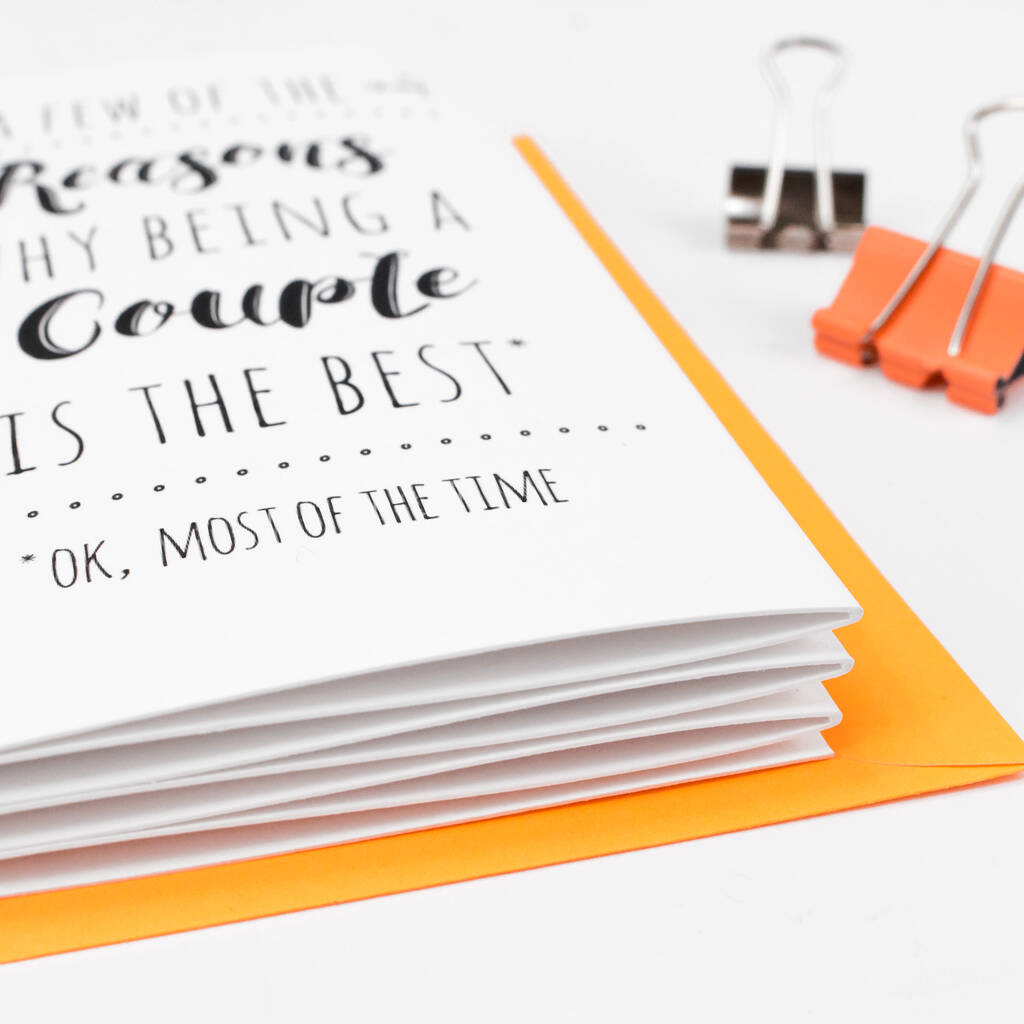 A FEW OF THE
Reasons
WHY BEING A
Couple
IS THE BEST*
*OK, MOST OF THE TIME